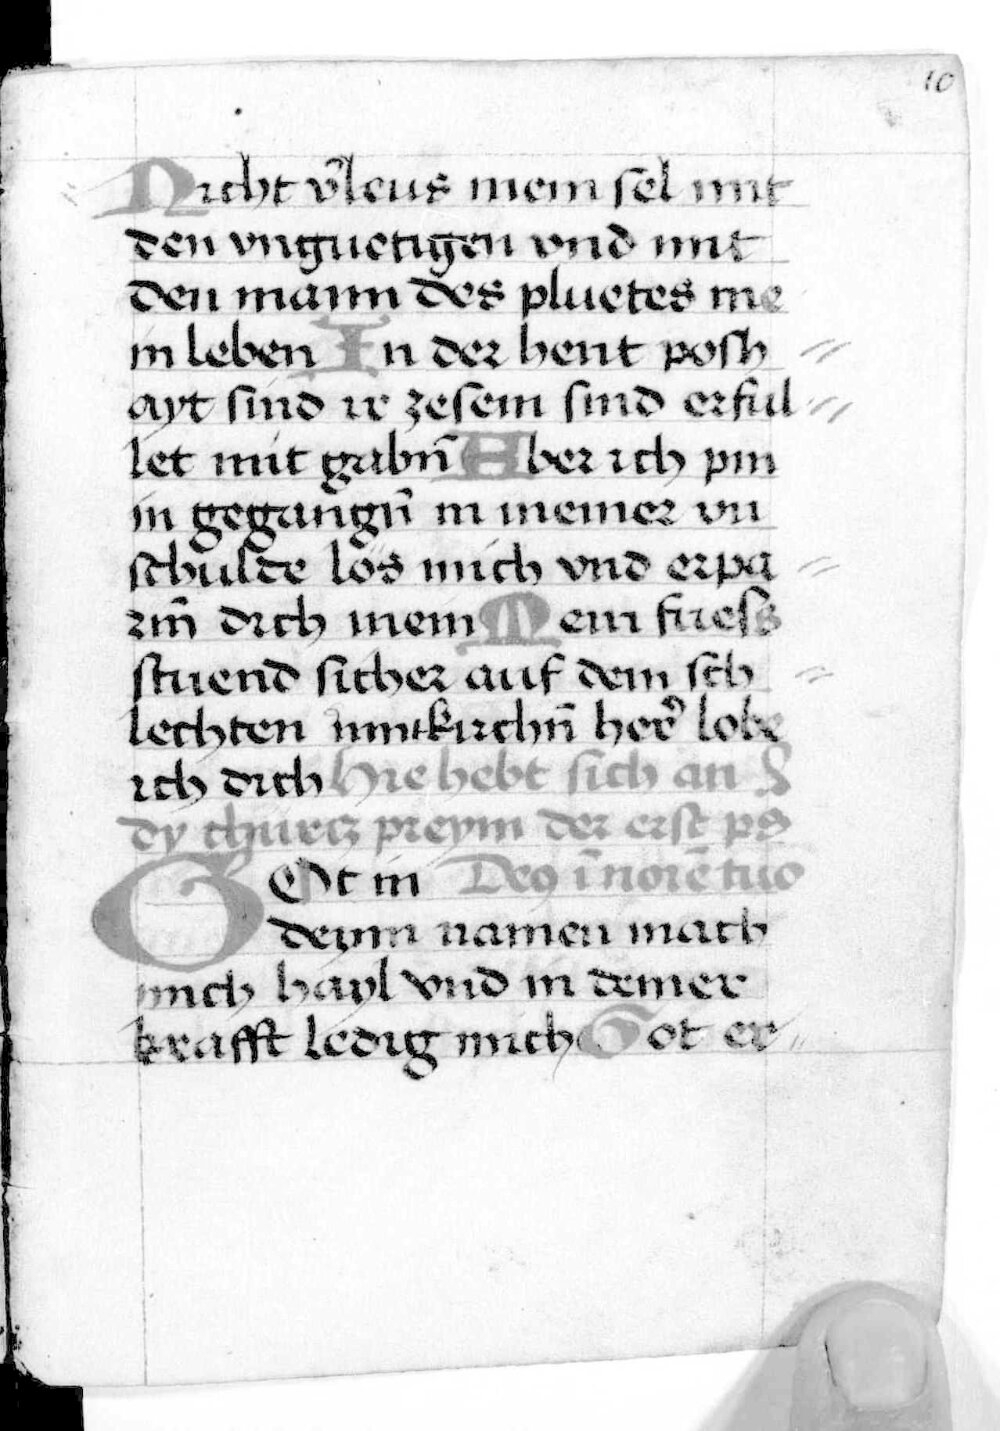 10
Nicht v̄leus mein sel mit
den vnguetigen vnd mit
den mann des pluetes me
in leben In der hent posh
ayt sind ir zesem sind erful
let mit gabn̄ Aber ich pin
in gegangn̄ in meiner vn
schulde lös mich vnd erpa
rm̄ dich mein Mein fuess
stuend sicher auf dem sch
lechten inn kirchn̄ her̄ lobe
ich dich Hie hebt sich an
dy churcz preym der erst ps
GOt in Deꝰ ī noīe tuo
deym namen mach
mich hayl vnd in deiner
krafft ledig mich Got er